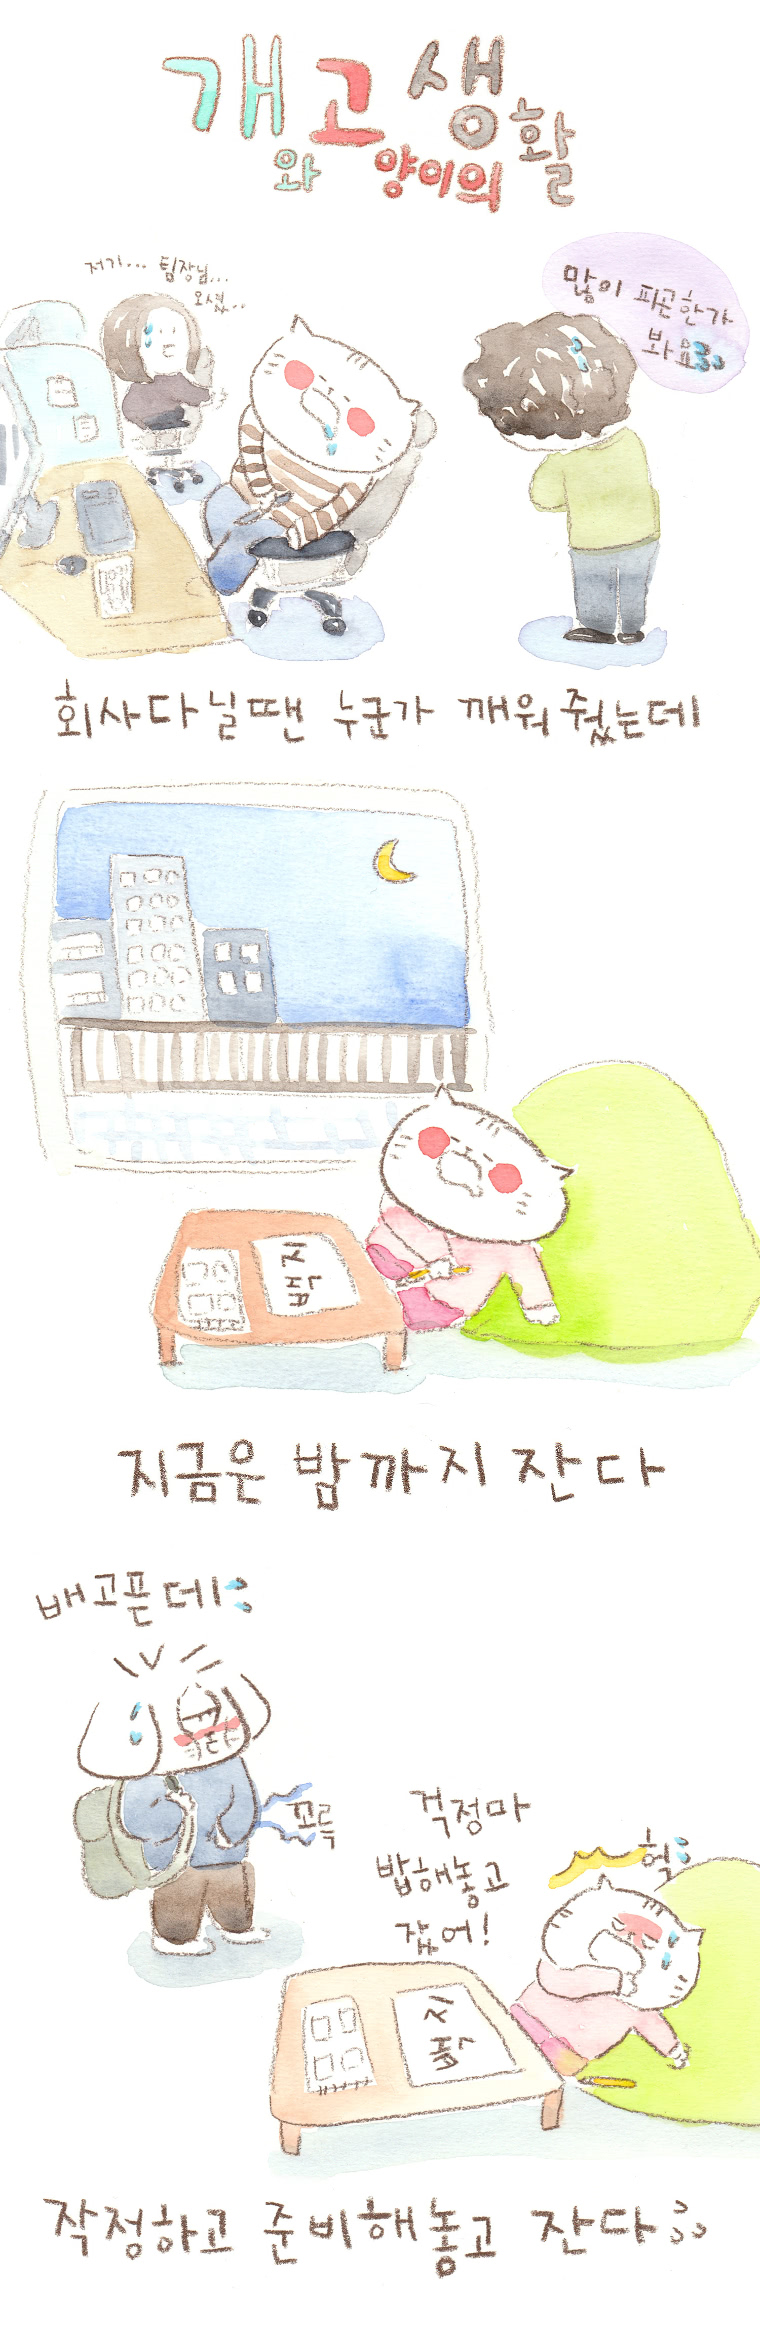 개고생
와 양이의 활
저기... 팀장님...
오셨..
많이 피곤한가
봐요
회사다닐땐 누군가 깨워줬는데
지금은 밤까지 잔다
배고픈데
꼬륵
걱정마
밥해놓고
잤어!
헉
작정하고 준비해놓고 잔다